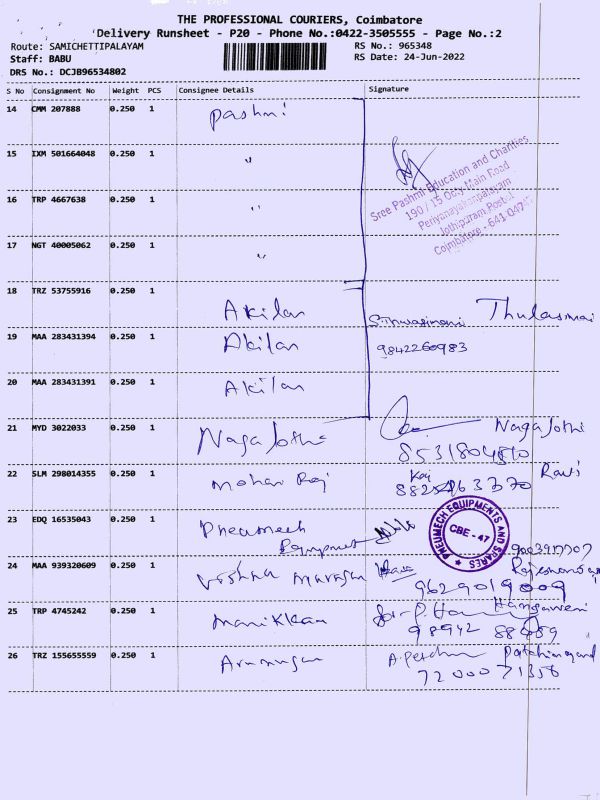 THE PROFESSIONAL COURIERS, Coimbatore
Delivery Runsheet - P20 - Phone No.:0422-3505555 - Page No.:2
Route: SAMICHETTIPALAYAM
RS No.: 965348
Staff: BABU
RS Date: 24-Jun-2022
DRS No.: DCJB96534802
S No Consignment No Weight PCS Consignee Details Signature
14 CMM 207888 0.250 1 Pashmi
15 IXM 501664048 0.250 1 "
Sree Pashmi Education and Charities
190 / 15 Only Main Road
Periyanayakanpalayam
Jothipuram Postal
Coimbatore - 641 047
16 TRP 4667638 0.250 1 "
17 NGT 40005062 0.250 1 "
18 TRZ 53755916 0.250 1 Akilan
19 MAA 283431394 0.250 1 Akilan 9842260983
20 MAA 283431391 0.250 1 Akilan
21 MYD 3022033 0.250 1 Naga Jothi Naga Jothi
22 SLM 298014355 0.250 1 Mohan Raj
23 EDQ 16535043 0.250 1 Pneumech
PNEUMECH EQUIPMENTS AND SPARES
CBE - 47
24 MAA 939320609 0.250 1 9629019009
25 TRP 4745242 0.250 1 Manikkam
26 TRZ 155655559 0.250 1 Arumugam